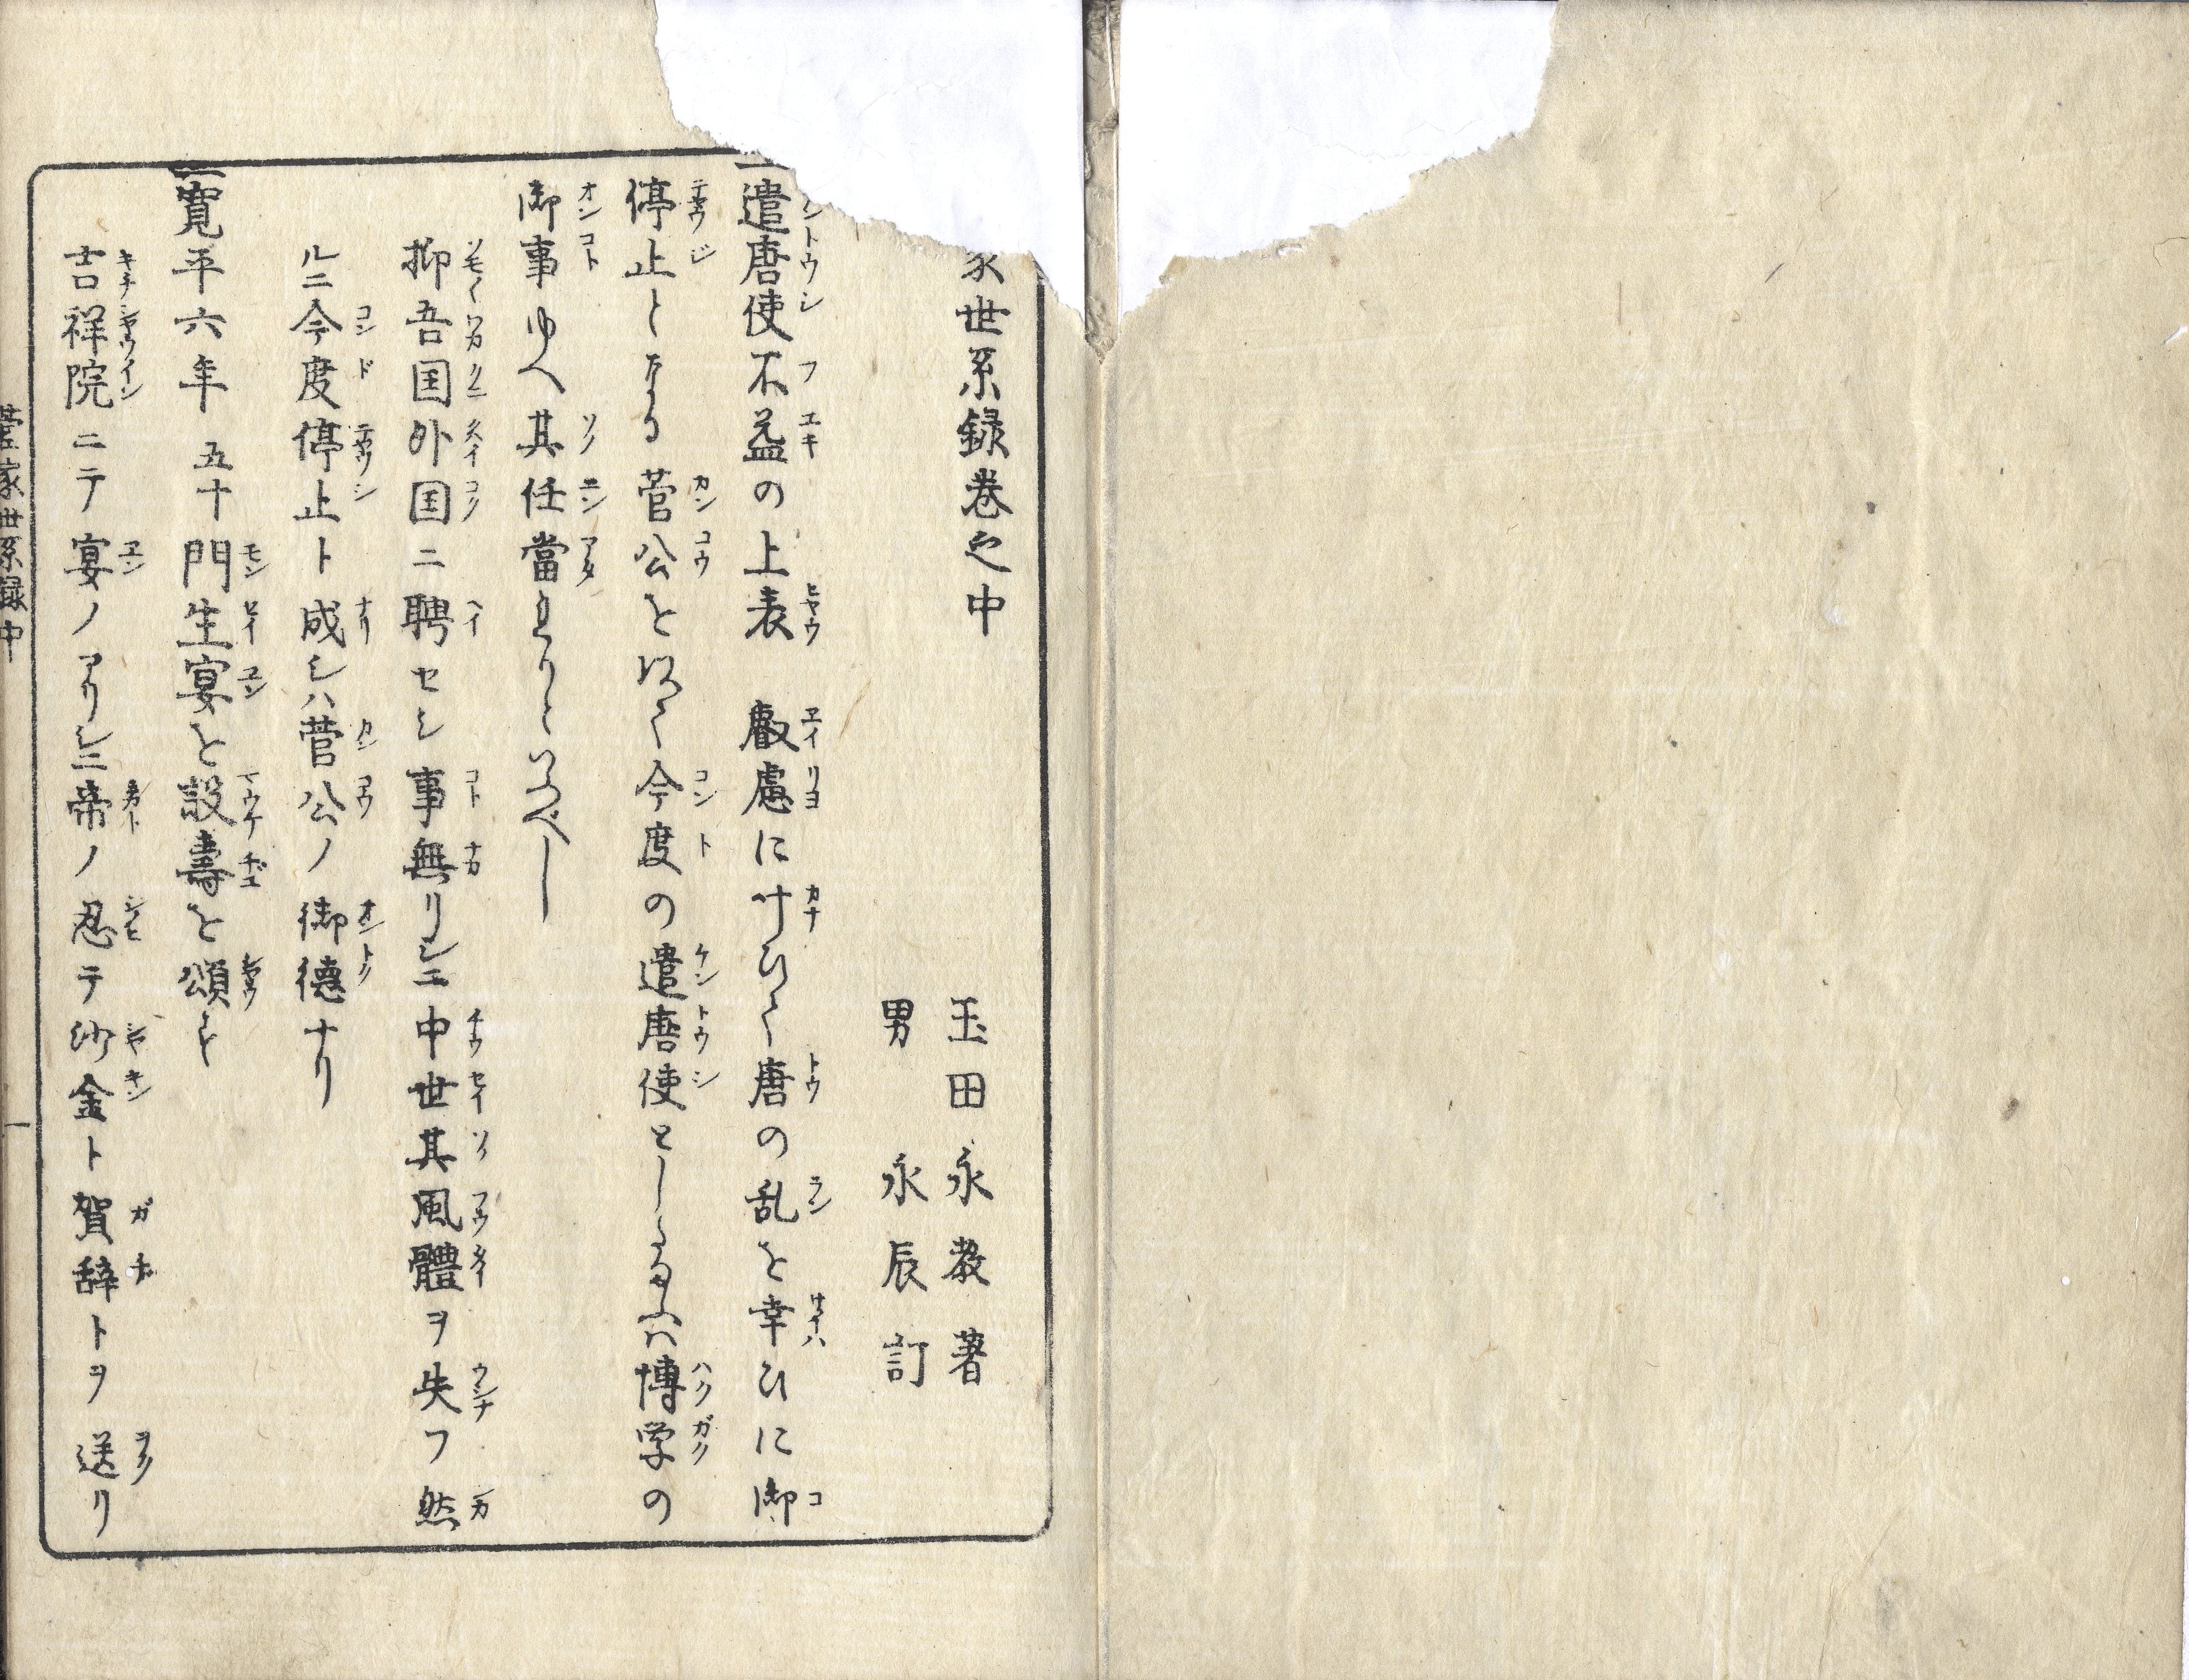 家世系録巻之中
玉田永教著
男　永辰訂
一遣唐使不益の上表　叡慮に叶ひて唐の乱を幸ひに御
停止となる菅公を以て今度の遣唐使としたまふハ博学の
御事ゆへ其任當れりといふべし
抑吾国外国ニ聘セシ事無リシニ中世其風體ヲ失フ然
ルニ今度停止ト成シハ菅公ノ御徳ナリ
一寛平六年五十門生宴を設壽を頌す
吉祥院ニテ宴ノアリシニ帝ノ忍テ沙金ト賀辞トヲ送リ
菅家世系録中
一